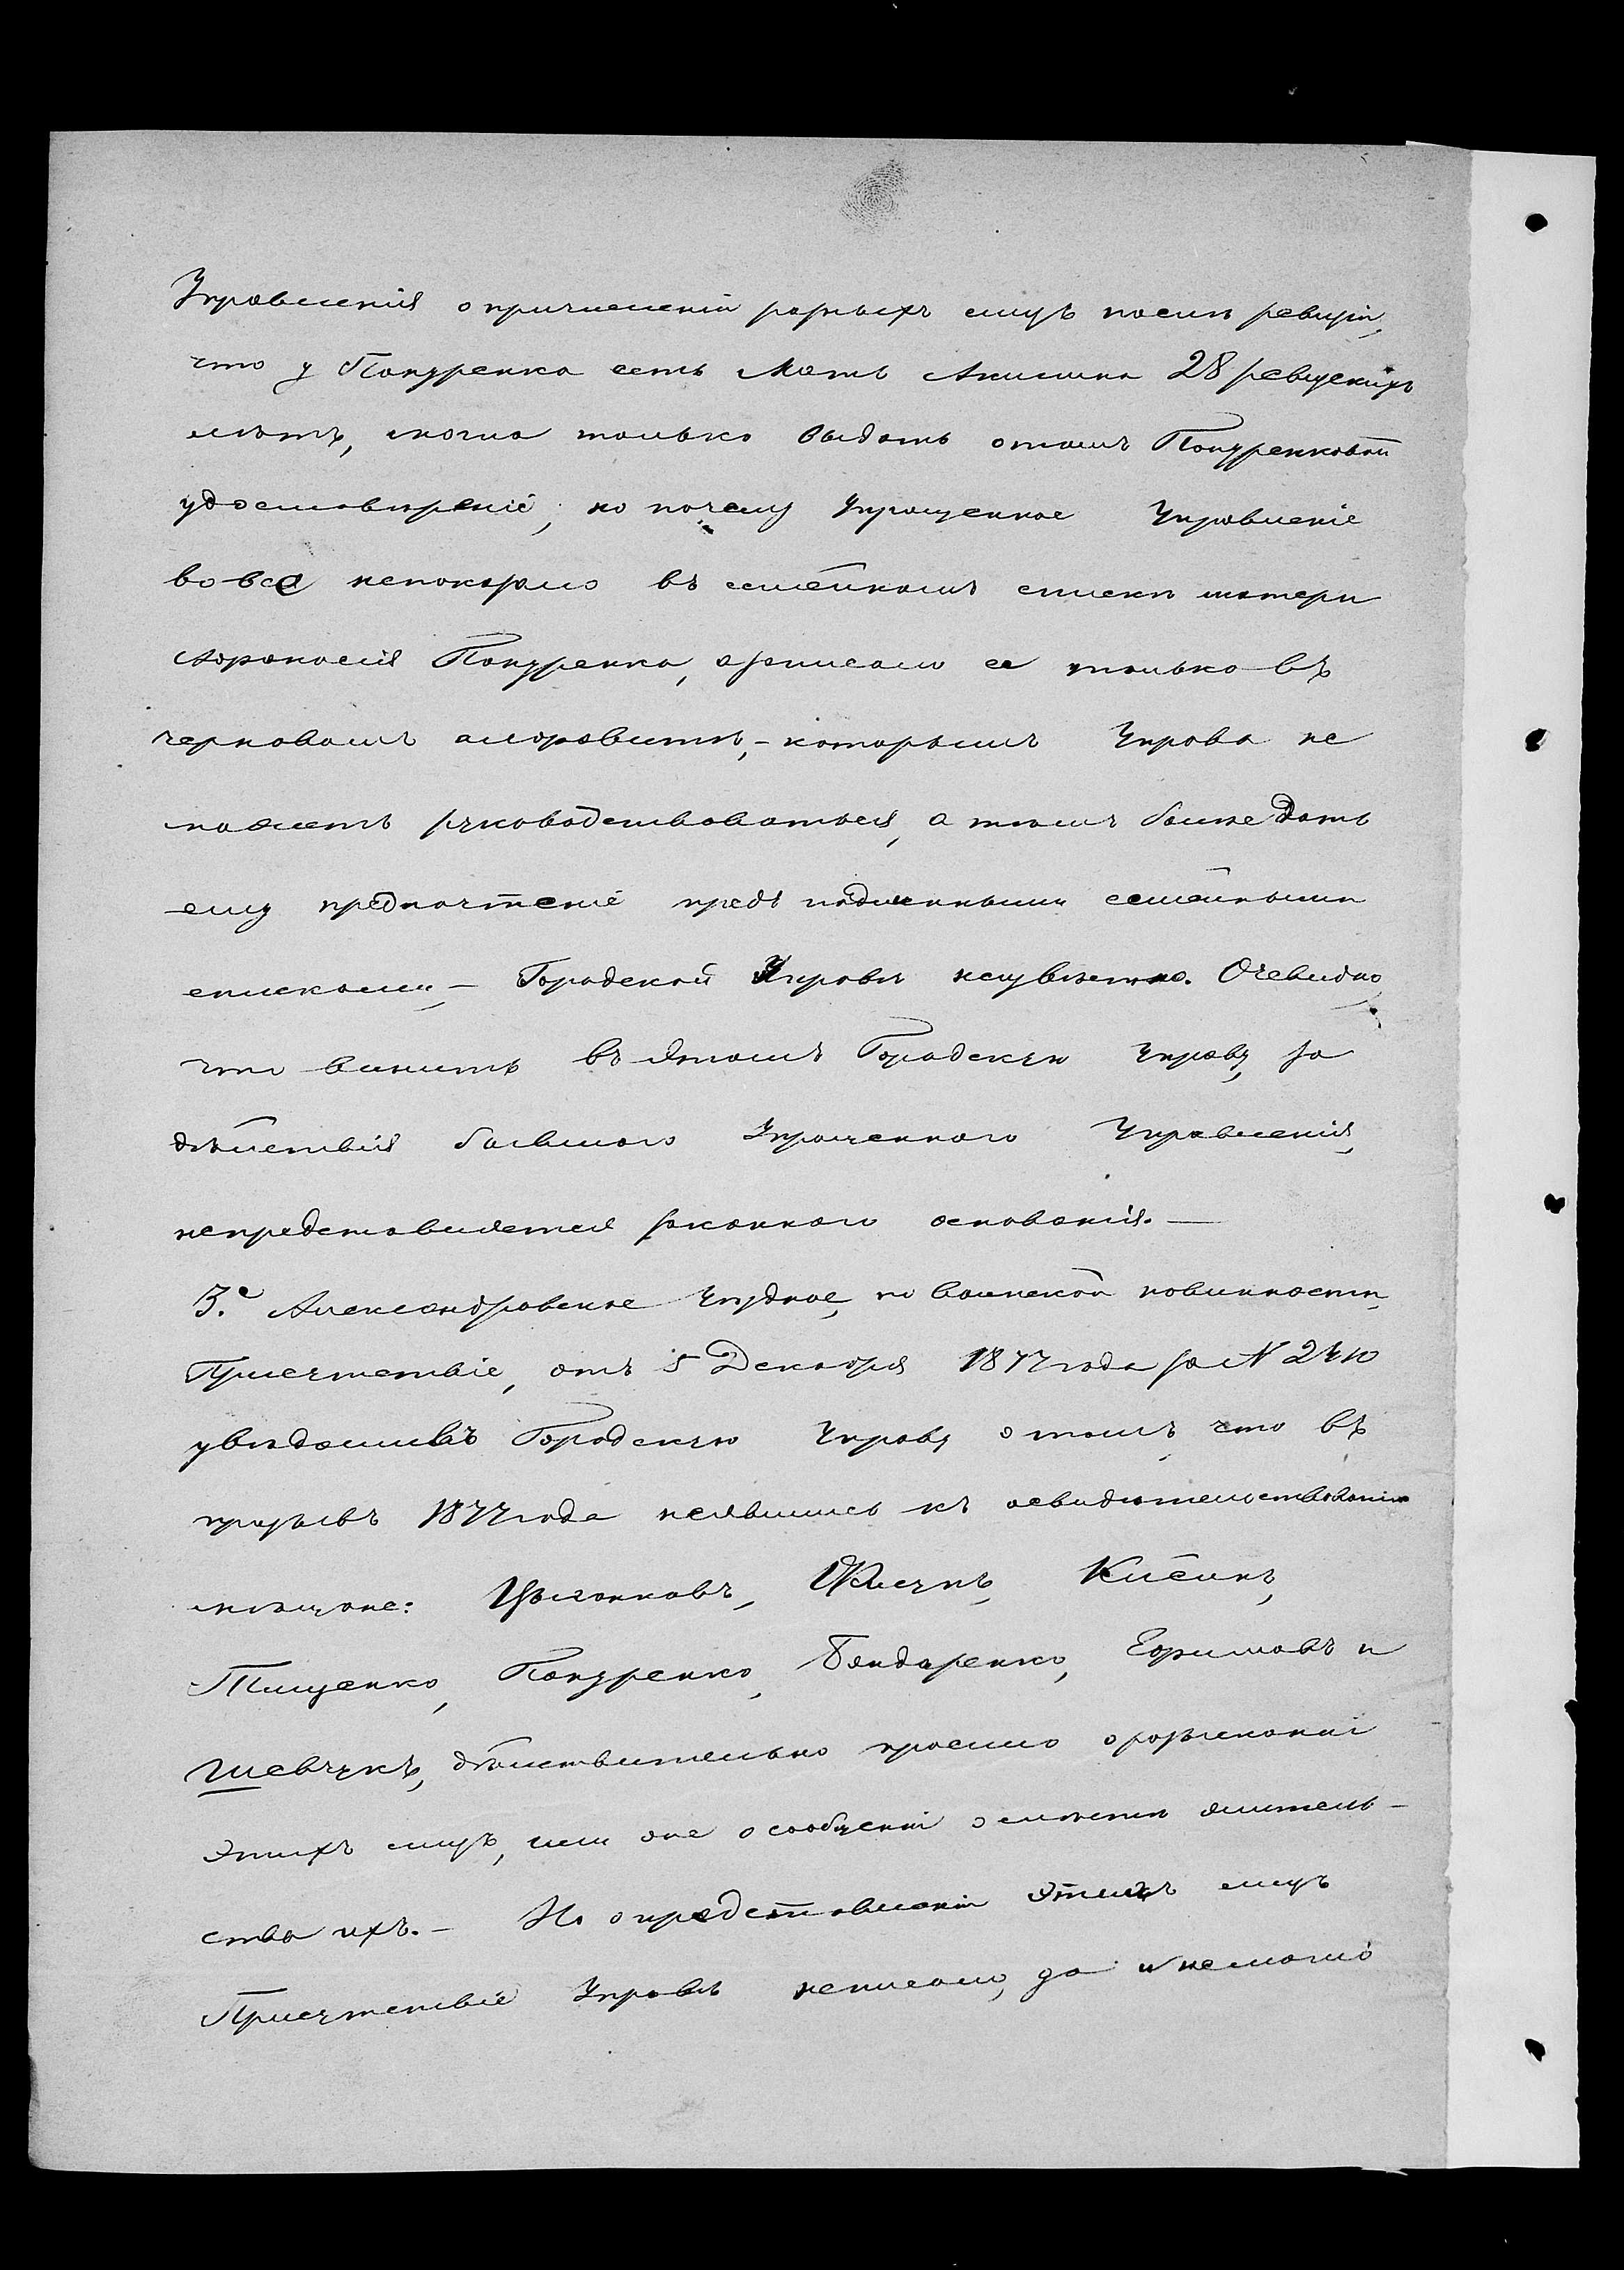 Управленія о причисленіи разныхъ лицъ послѣ ревизіи,
что у Пондуренка есть Мать Акилина 28 ревизскихъ
лѣтъ, могла только выдать о томъ Пондуренковой
удостовѣреніе; но почему Упрощенное Управленіе
вовсе непоказало въ семейномъ спискѣ матери
Афанасія Пондуренка, а записало ее только въ
черновомъ алфавитѣ, - которымъ Управа не
можетъ руководствоваться, а тѣмъ болѣе дать
ему предпочтеніе предъ подлинными семейными
списками, - Городской Управѣ неизвѣстно. Очевидно,
что винить въ этомъ Городскую Управу, за
дѣйствія бывшаго Упрощеннаго Управленія,
непредставляется законнаго основанія. —
3.е Александровское Уѣздное, по воинской повинности,
Присутствіе, отъ 5 Декабря 1877 года за N 2410
увѣдомивъ Городскую Управу о томъ, что въ
призывъ 1877 года неявились къ освидѣтельствованію
мѣщане: Цыганковъ, Кисинъ,
Тищенко, Пондуренко, Бондаренко, Ефимовъ и
Шевчукъ, дѣйствительно просило о розысканіи
этихъ лицъ, или же о сообщеніи о мѣстѣ житель-
ства ихъ. - Но о представленіи этихъ лицъ
Присутствіе Управѣ неписало, да и немогло